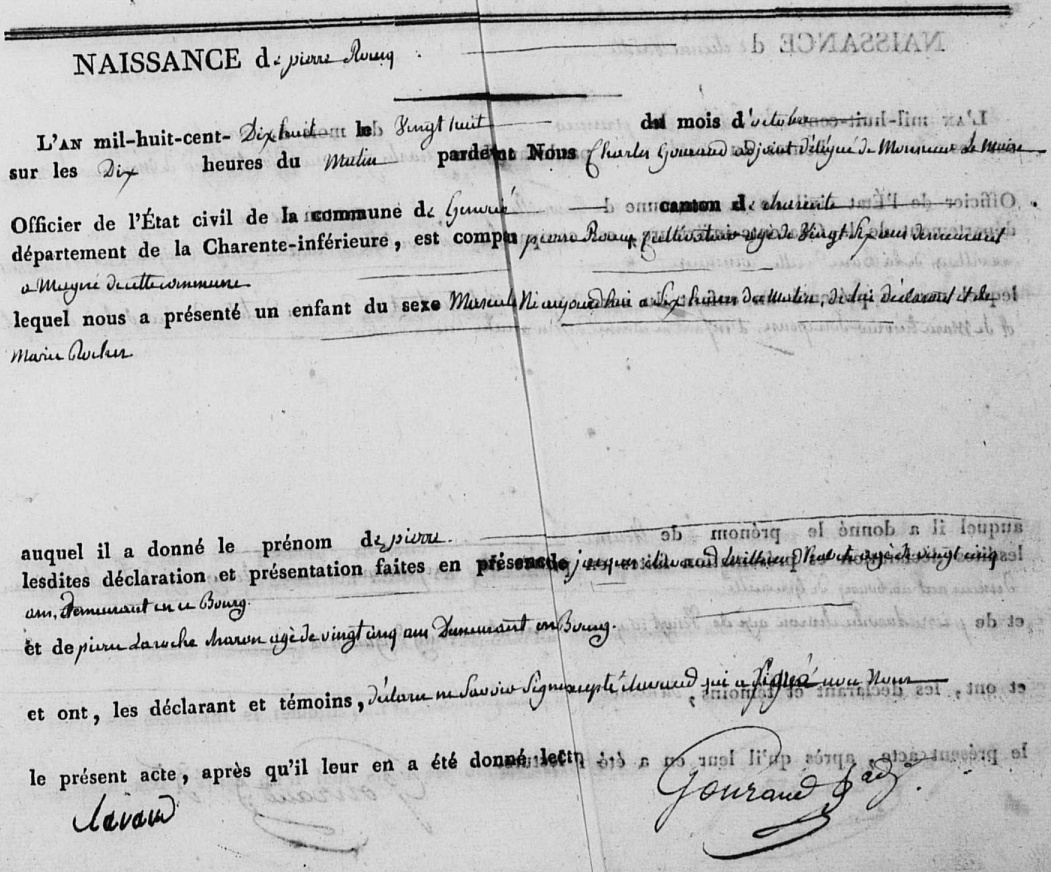 NAISSANCE de pierre
L'AN mil-huit-cent- Dixhuit le Vingt huit du mois d'octobre
sur les Dix heures du Matin pardevant Nous Charles Gouraud adjoint délégué de Monsieur le Maire
Officier de l'État civil de la commune de canton de
département de la Charente-inférieure, est comparu pierre cultivateur agé de Vingt Six ans demeurant
a de cette commune
lequel nous a présenté un enfant du sexe Masculin Né aujourd'hui a Six heures du Matin, de lui déclarant et de
Marie Rocher.
auquel il a donné le prénom de pierre.
lesdites déclaration et présentation faites en présence de jacques agé de vingt cinq
ans, demeurant en ce Bourg.
et de pierre Laroche agé de vingt cinq ans Demeurant en Bourg.
et ont, les déclarant et témoins, déclaré ne Savoir Signer excepté qui a Signé avec Nous
le présent acte, après qu'il leur en a été donné lecture
Gouraud adj.